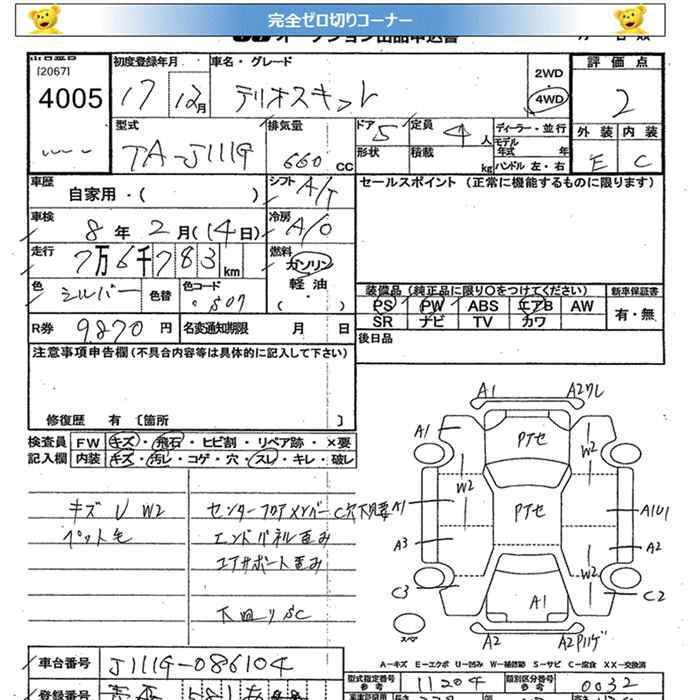 完全ゼロ切りコーナー
オークション出品申込書
[2067]
4005
初度登録年月
17 12月
車名・グレード
テリオスキッド
2WD
4WD
評価点
2
型式
TA-J111G
排気量
660 CC
ドア 5
定員 4 人
形状
積載 kg
ディーラー・並行
モデル年式 年
ハンドル 左・右
外装 内装
E C
車歴
自家用・( )
シフト A/T
セールスポイント (正常に機能するものに限ります)
車検
8年 2月(14日)
冷房 A/C
走行
7万6千783km
燃料
ガソリン
軽油
( ・ )
色
シルバー
色替
色コード
S07
装備品(純正品に限り○をつけてください)
新車保証書
PS PW ABS エアB AW
有・無
SR ナビ TV カワ
R券
9870円
名変通知期限 月 日
後日品
注意事項申告欄(不具合内容等は具体的に記入して下さい)
修復歴 有 〔箇所 〕
検査員 FW キズ・飛石・ヒビ割・リペア跡・×要
記入欄 内装 キズ・汚レ・コゲ・穴・スレ・キレ・破レ
キズ U W2
ペット毛
センターフロアメンバーC穴下見要
エンドパネル歪み
エアサポート歪み
下回りSC
A1
A2ワレ
A1
Pイセ
W2
W2
A1
Pイセ
A1U1
A3
A2
W2
C3
A1
C2
A2
A2Pハゲ
スペア
A-キズ E-エクボ U-凹み W-補修跡 S-サビ C-腐食 XX-交換済
車台番号
J111G-086104
型式指定番号
参考
11204
類別区分番号
参考
0032
登録番号